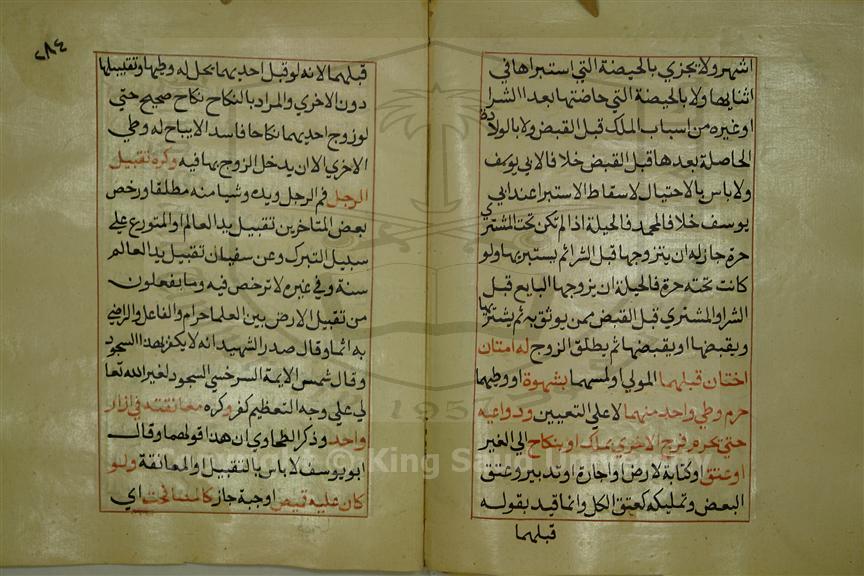 اشهر ولا يجزي بالحيضة التي استبراها في
اثنايها ولا بالحيضة التي حاضتها بعد الشرا
او غيره من اسباب الملك قبل القبض ولا بالولادة
الحاصلة بعدها قبل القبض خلافا لابي يوسف
ولا باس بالاحتيال لاسقاط الاستبرا عند ابي
يوسف خلافا لمحمد فالحيلة اذا لم تكن تحت المشتري
حرة جاز له ان يتزوجها قبل الشرا ثم يستبريها ولو
كانت تحته حرة فالحيلة ان يزوجها البايع قبل
الشرا والمشتري قبل القبض ممن يوثق به ثم يشتريها
ويقبضها او يقبضها ثم يطلق الزوج له امتان
اختان قبلهما المولي او لمسهما بشهوة او وطيهما
حرم وطي واحد منهما لا علي التعيين ودواعيه
حتي يحرم فرج الاخري بملك او بنكاح الي الغير
او عتق او كتابة لا رهن واجارة او تدبير وعتق
البعض وتمليكه كعتق الكل وانما قيد بقوله
قبلهما
٢٨٤
قبلهما لانه لو قبل احديهما يحل له وطيها وتقبيلها
دون الاخري والمراد بالنكاح نكاح صحيح حتي
لو زوج احديهما نكاحا فاسدا لا يباح له وطي
الاخري الا ان يدخل الزوج بها فيه وكره تقبيل
الرجل فم الرجل ويده وشيا منه مطلقا ورخص
بعض المتاخرين تقبيل يد العالم او المتورع علي
سبيل التبرك وعن سفيان تقبيل يد العالم
سنة وفي غيره لا ترخص فيه وما يفعلون
من تقبيل الارض بين العلما حرام والفاعل والراضي
به اثما وقال صدر الشهيد انه لا يكفر بهذا السجود
وقال شمس الايمة السرخسي السجود لغير الله تعا
لي علي وجه التعظيم كفر وكره معانقته في ازار
واحد وذكر الطحاوي ان هذا قولهما وقال
ابو يوسف لا باس بالتقبيل والمعانقة ولو
كان عليه قميص او جبة جاز كالمصافحة اي
Copyright © King Saud University
1957